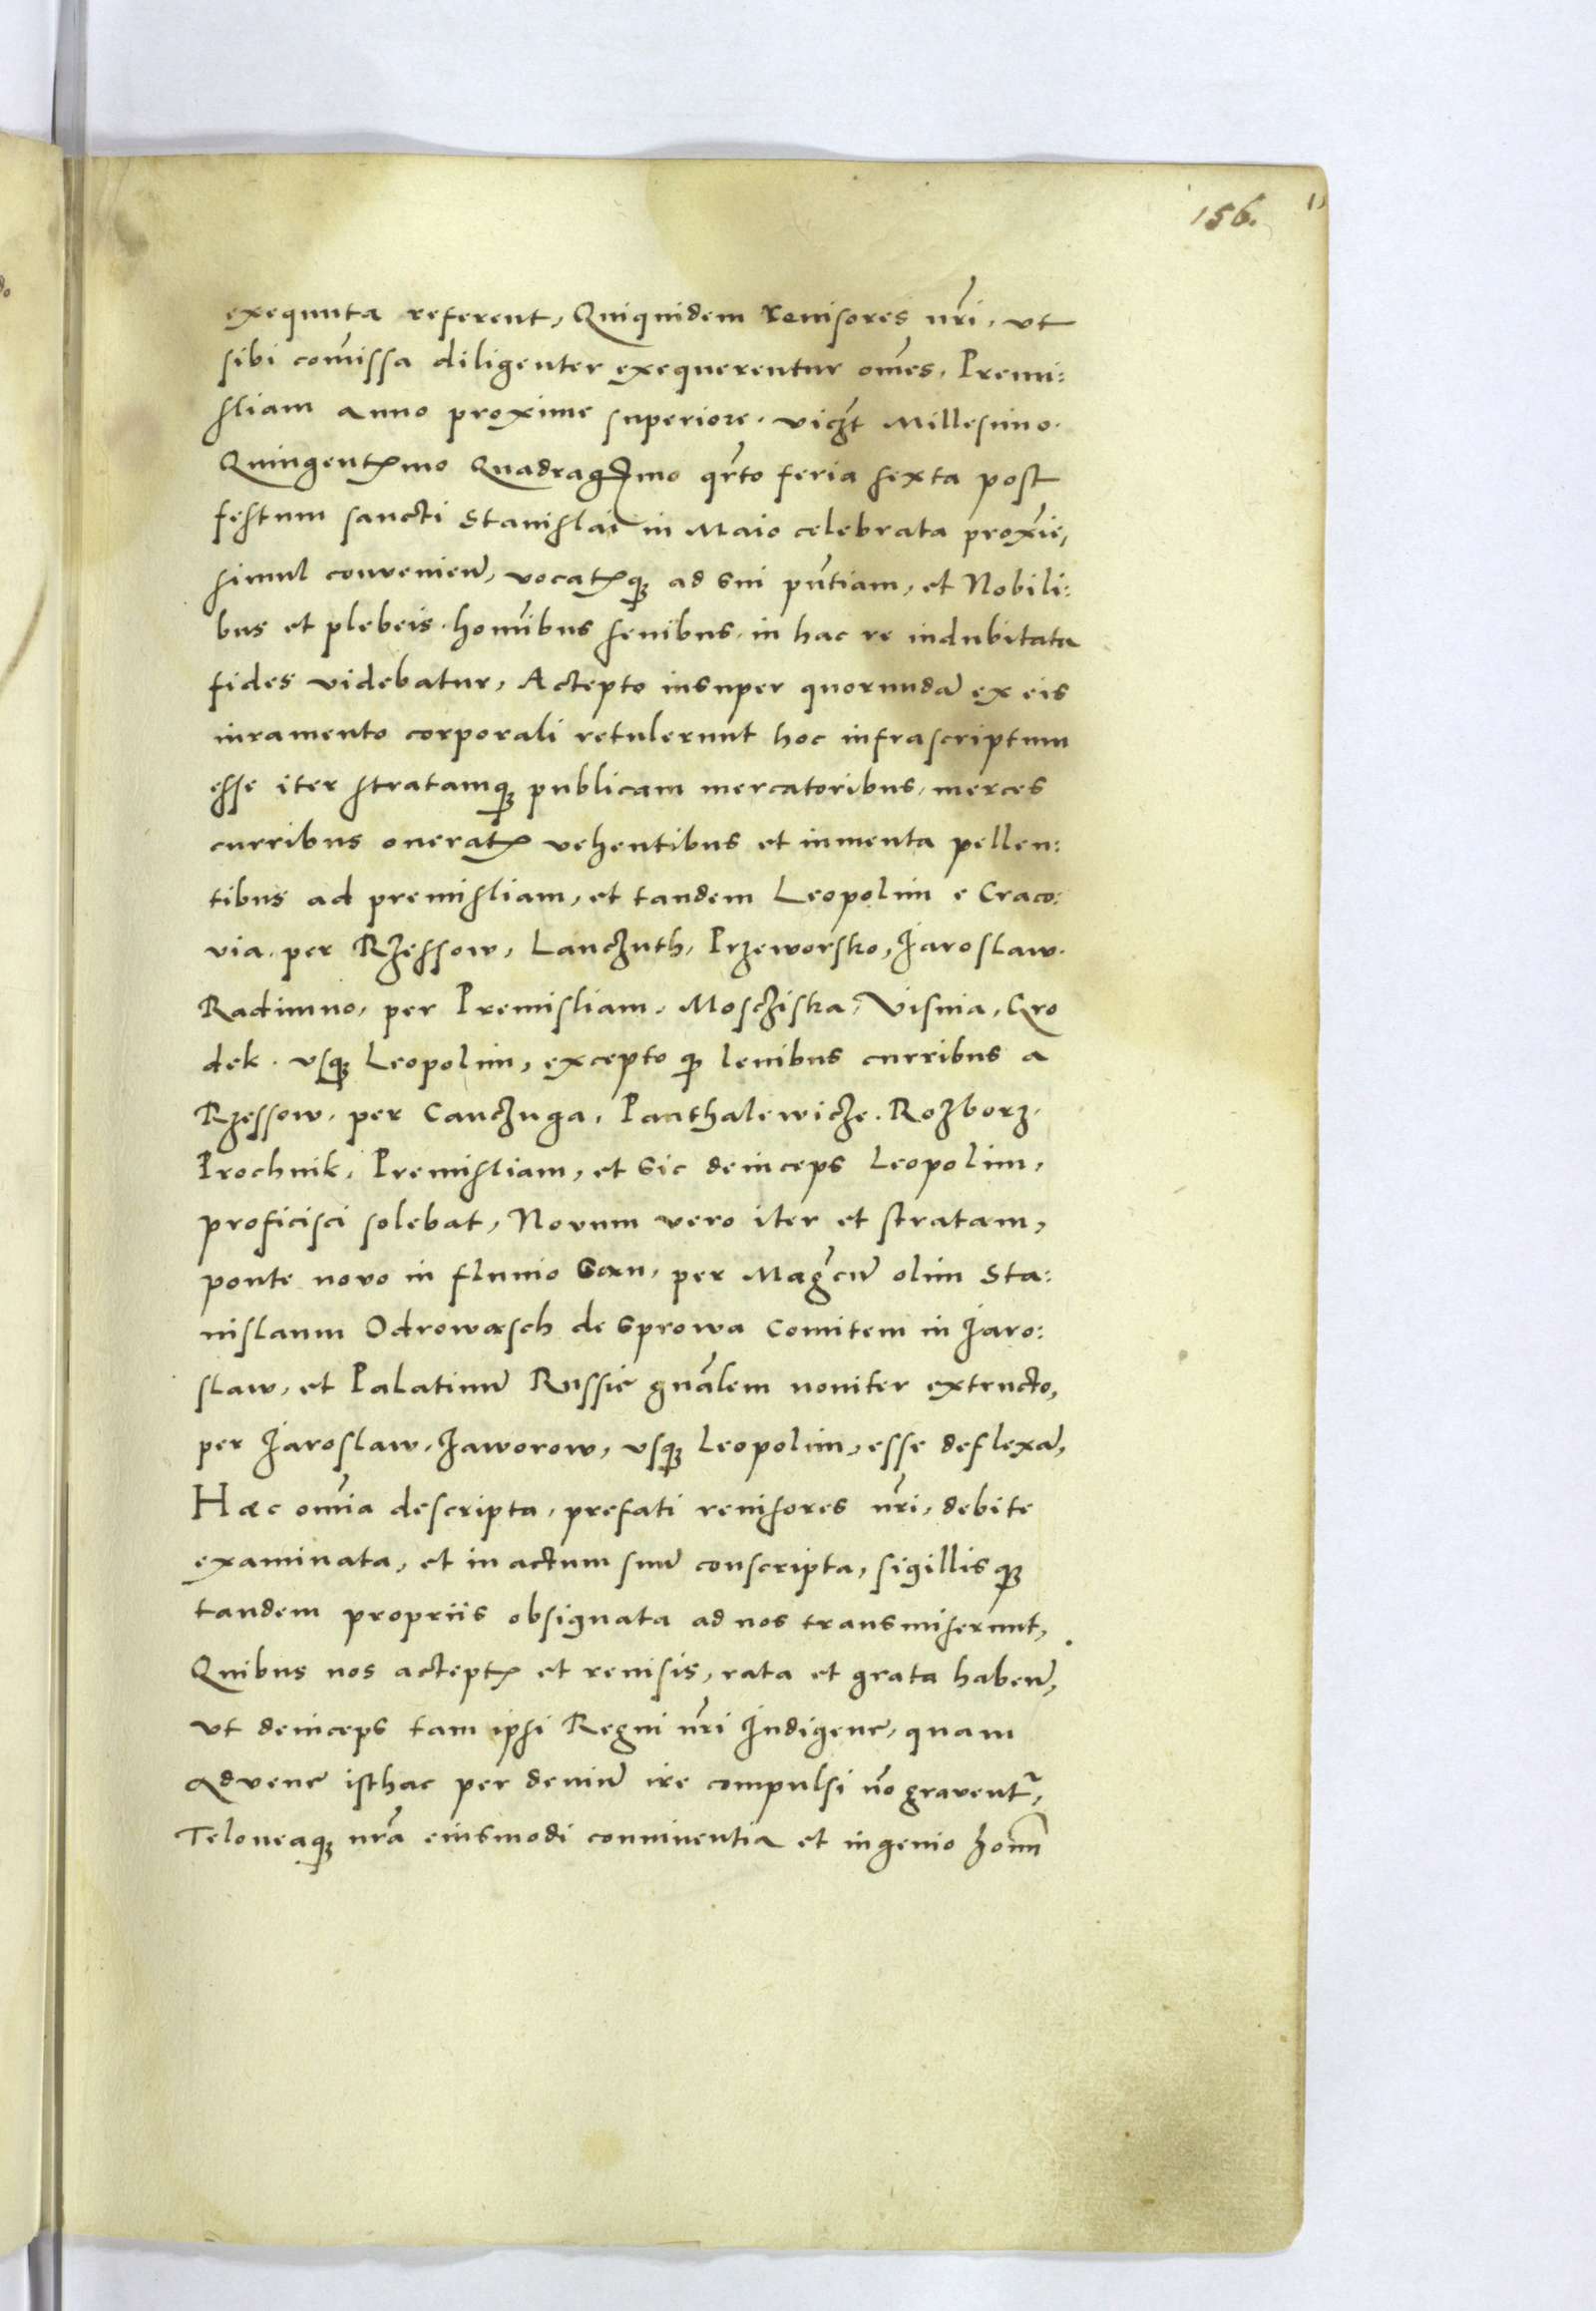 156.
exequuta referent, Quiquidem revisores nr̃i, ut
sibi com̃issa diligenter exequerentur om̃es, Premi:
sliam anno proxime superiore, vicz̃t Millesimo.
Quingentꝭmo Quadragꝭmo qr̃to feria sexta post
festum sancti Stanislai in Maio celebrata proxĩe,
simul convenien̄, vocatꝭqꝫ ad sui pñtiam, et Nobili:
bus et plebeis. homĩbus senibus. in hac re indubitata
fides videbatur, Accepto insuper quorundã ex eis
iuramento corporali retulerunt hoc infrascriptum
esse iter stratamqꝫ publicam mercatoribus, merces
curribus oneratꝭ vehentibus et iumenta pellen:
tibus ad premisliam, et tandem Leopolim e Craco:
via. per Rzessow, Lanczuth, Przeworsko, Jaroslaw.
Radimno, per Premisliam, Mosciska, Visnia, Gro
dek. usqꝫ Leopolim, excepto qꝫ levibus curribus a
Rzessow. per Canczuga, Panthalewicze. Rozborz.
Prochnik, Premisliam, et sic deinceps Leopolim,
proficisci solebat, Novum vero iter et stratam,
ponte novo in fluvio San, per Magc̃ū olim Sta:
nislaum Odrowasch de Sprowa Comitem in Jaro:
slaw, et Palatinū Russie gnãlem noviter extructo,
per Jaroslaw, Jaworow, usqꝫ Leopolim, esse deflexã,
Haec om̃ia descripta, prefati revisores nr̃i, debite
examinata, et in actum suū conscripta, sigillisqꝫ
tandem propriis obsignata ad nos transmiserunt,
Quibus nos acceptꝭ et revisis, rata et grata haben̄,
ut deinceps tam ipsi Regni nr̃i Indigene, quam
advene isthac per deviū ire compulsi nõ gravent᷑,
Teloneaqꝫ nr̃a eiusmodi conniventia et ingenio hom̃